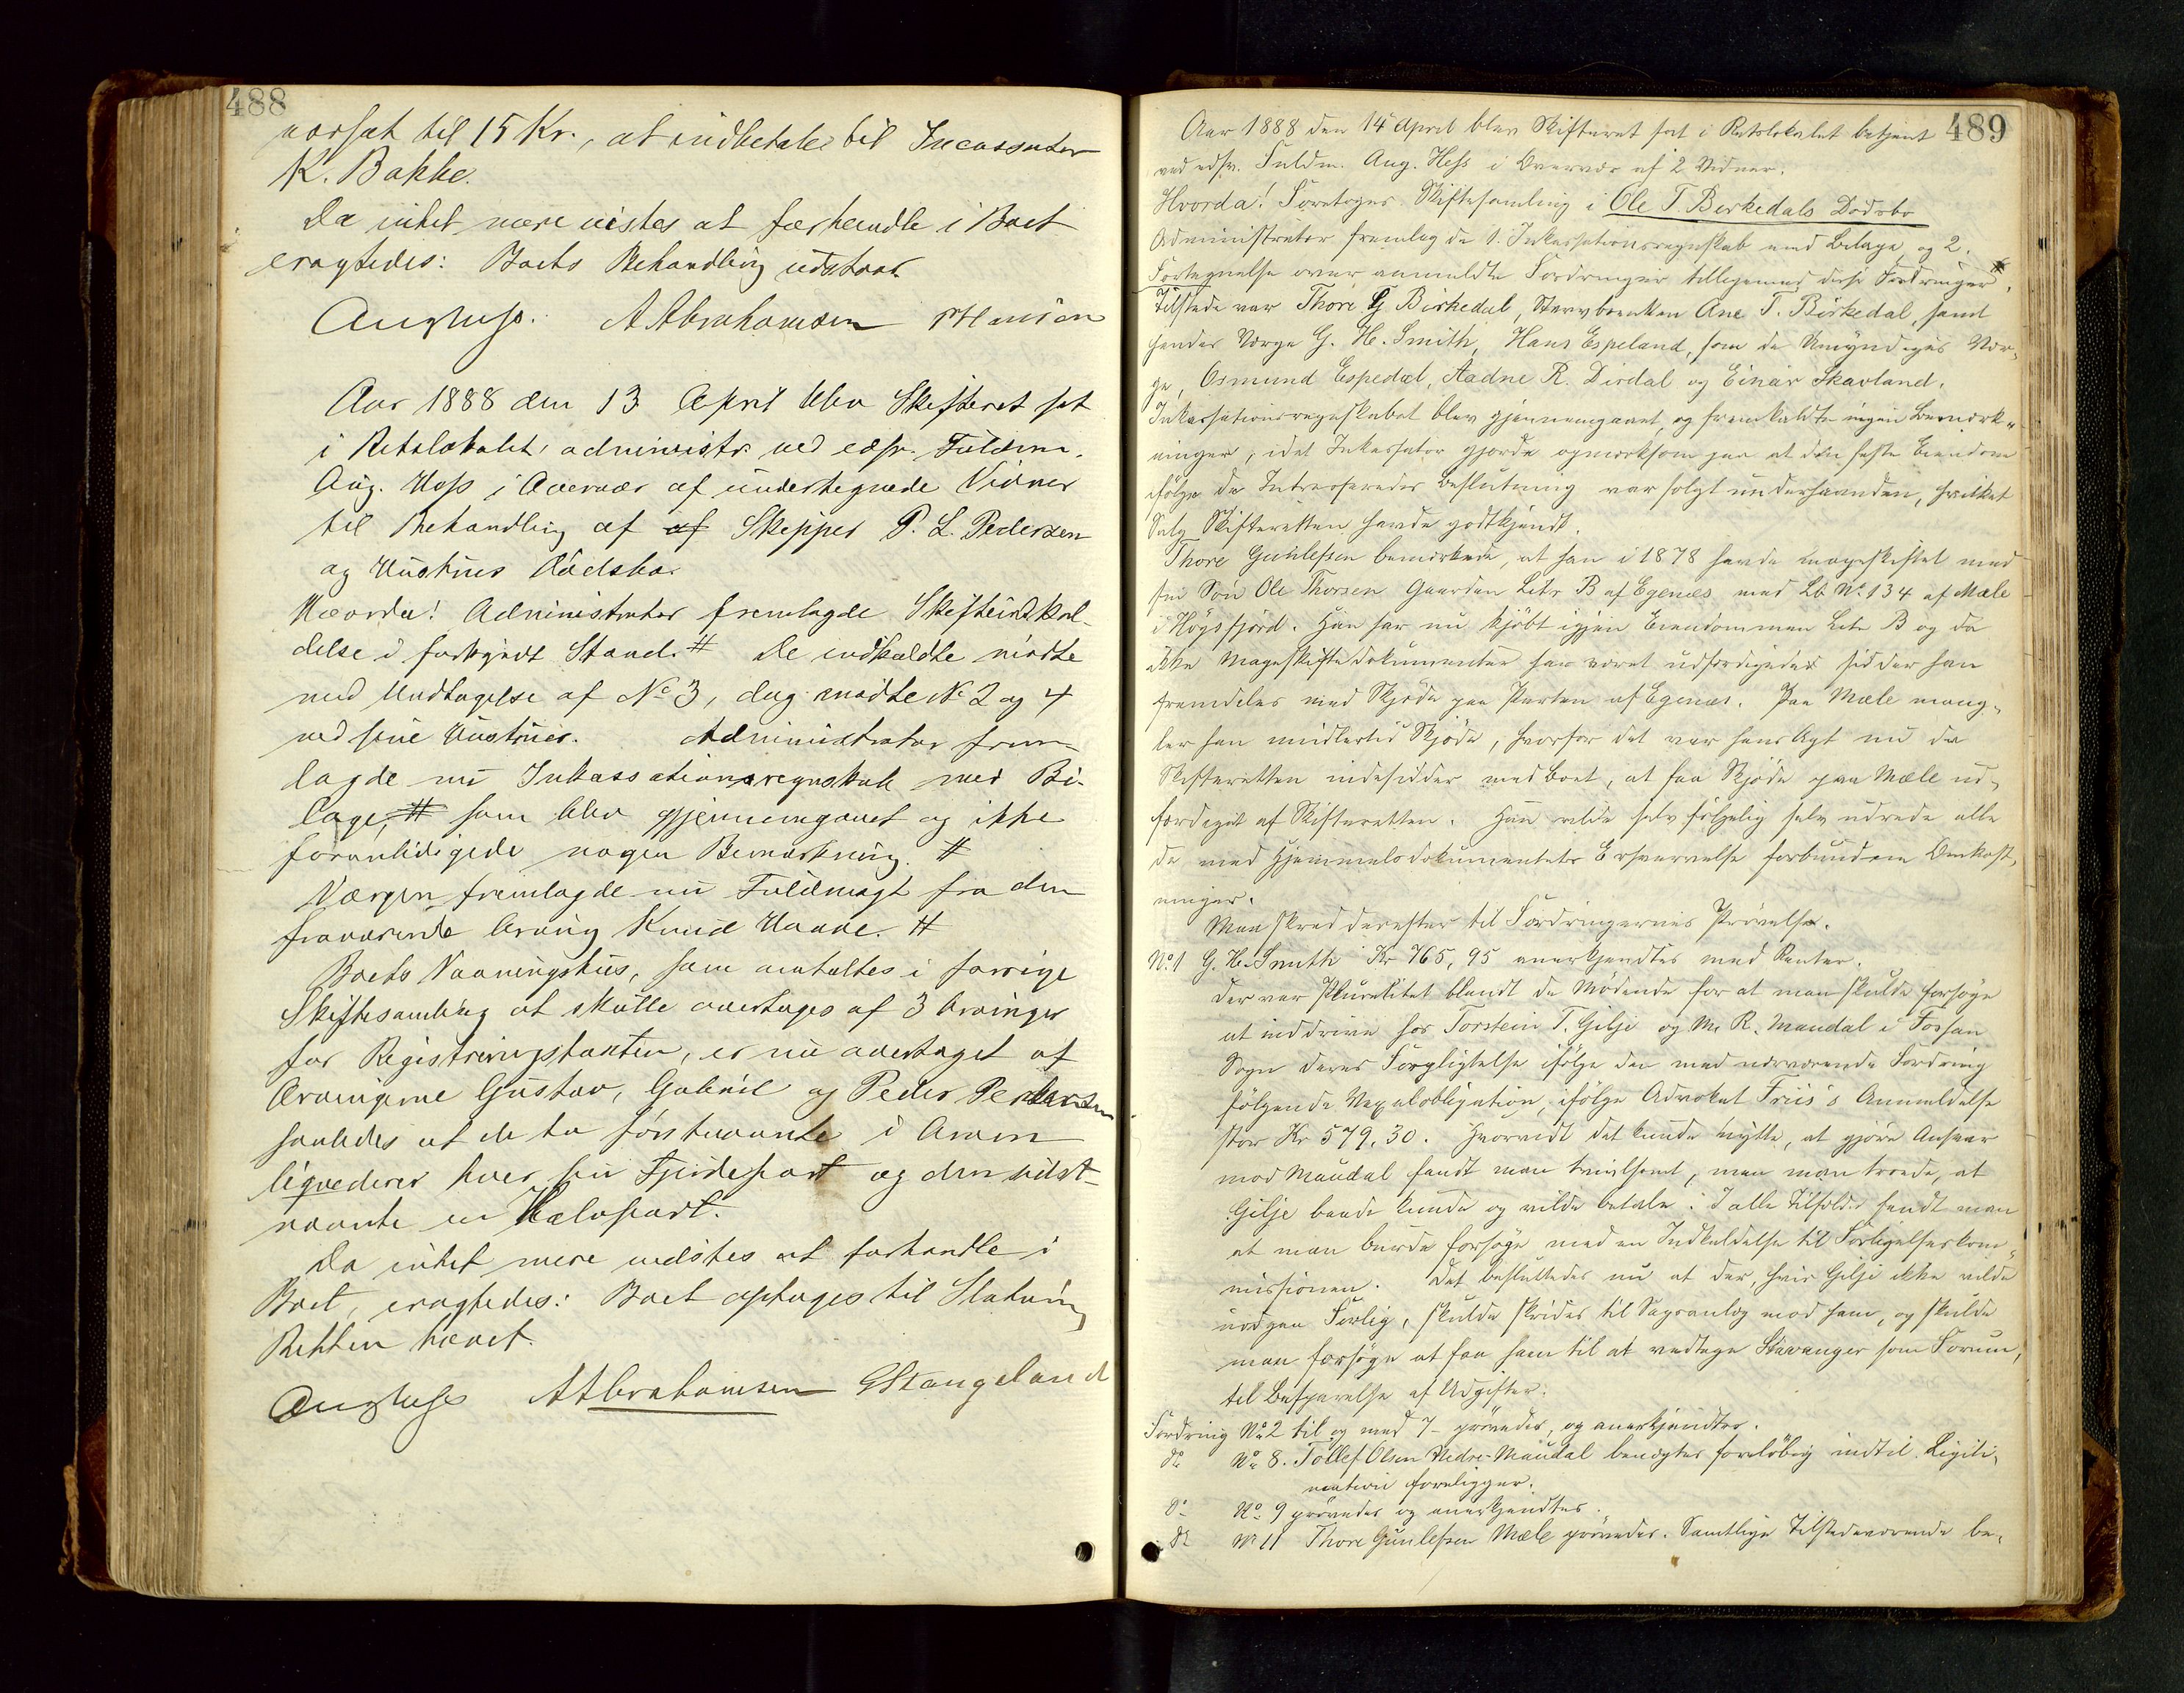 488
ansat til 15 Kr., at indbetale til Incassator
K. Bakke.
Da intet mere vistes at forhandle i Boet
eragtedes: Boets Behandling udstaar
Aug Hess. A Abrahamsen PHansen
Aar 1888 den 13 April blev Skifteret sat
i Retslokalet, administr. ved edsv. Fuldm.
Aug. Hess i Overvær af undertegnede Vidner
til Behandling af af Skipper P. L. Pedersen
og Hustrues Dødsbo.
Hvorda! Administrator fremlagde Skifteindkal-
delse i forkyndt Stand. # De indkaldte mødte
med Undtagelse af No 3, dog mødte No 2 og 4
ved sine Hustruer. Administrator frem-
lagde nu Inkassationsregnskab med Bi-
lage, # som blev gjennemgaaet og ikke
foranledigede nogen Bemærkning. #
Værgen fremlagde nu Fuldmagt fra den
fraværende Arving Knud Haave. #
Boets Vaaningshus, som omtaltes i forrige
Skiftesamling at skulle overtages af 3 Arvinger
for Registreringstaxten, er nu overtaget af
Arvingerne Gustav, Gabriel og Peder Pedersen
saaledes at de to førstnævnte i Arven
liqvederer hver sin Fjerdepart og den sidst-
nævnte en Halvpart.
Da intet mere vidstes at forhandle i
Boet, eragtedes: Boet optages til Slutning
Retten hævet.
Aug Hess AAbrahamsen GStangeland
489
Aar 1888 den 14 April blev Skifteret sat i Retslokalet betjent
ved edsv. Fuldm. Aug. Hess i Overvær af 2 Vidner.
Hvorda! Foretoges Skiftesamling i Ole T. Berkedals Dødsbo
Administrator fremlagde 1. Inkassationsregnskab med Bilage og 2.
Fortegnelse over anmeldte Fordringer tilligemed disse Fordringer. #
Tilstede var Thore G Birkedal, Stervboenken Ane T. Birkedal, samt
hendes Værge G. H. Smith, Hans Espeland, som de Umyndiges Vær-
ge, Osmund Espedal, Aadne R. Dirdal og Einar Skavland.
Inkassationsregnskabet blev gjennemgaaet, og fremkaldte ingen Bemærk-
ninger, idet Inkassator gjorde opmærksom paa at den faste Eiendom
ifølge de Interesseredes Beslutning var solgt underhaanden, hvilket
Salg Skifteretten havde godkjendt.
Thore Gunlefsen bemærkede, at han i 1878 havde mageskiftet med
sin Søn Ole Thorsen Gaarden Litr B af Egenes med Lb No. 134 af Mæle
i Høgsfjord. Han har nu kjøbt igjen Eiendommen Litr B og da
ikke Mageskiftedokumenter har været udfærdigede sidder han
fremdeles med Skjøde paa Parten af Egenes. Paa Mæle mang-
ler han midlertid Skjøde, hvorfor det var hans Agt nu da
Skifteretten indesidder med Boet, at faa Skjøde paa Mæle ud-
færdiget af Skifteretten. Han vilde selv følgelig selv udrede alle
de med Hjemmelsdokumentets Erhvervelse forbundne Omkost-
ninger.
Man skred derefter til Fordringernes Prøvelse.
No. 1 G. H. Smith Kr 765,95 anerkjendtes med Renter.
Der var Pluralitet blandt de Mødende for at man skulde forsøge
at inddrive hos Torstein T. Gilje og M. R. Maudal i Fossan
Sogn deres Forpligtelse ifølge den med nærværende Fordring
følgende Vexelobligation, ifølge Advokat Friis's Anmeldelse
stor Kr 579,30. Hvorvidt det kunde nytte, at gjøre Ansvar
mod Maudal fandt man tvivlsomt, men man troede, at
Gilje baade kunde og vilde betale. I alle Tilfælde fandt man
at man burde forsøge med en Indkaldelse til Forligelseskom-
missionen. Det besluttedes nu at der, hvis Gilje ikke vilde
indgaa Forlig, skulde skrides til Sagsanlæg mod ham, og skulde
man forsøge at faa ham til at vedtage Stavanger som Forum,
til Besparelse af Udgifter.
Fordring No 2 til og med 7 prøvedes, og anerkjendtes.
do No 8. Tollef Olsen Nedre-Maudal benægtes foreløbig indtil Legiti-
mation foreligger.
do No 9 prøvedes og anerkjendtes.
do No 11 Thore Gunlefsen Mæle prøvedes. Samtlige Tilstedeværende be-